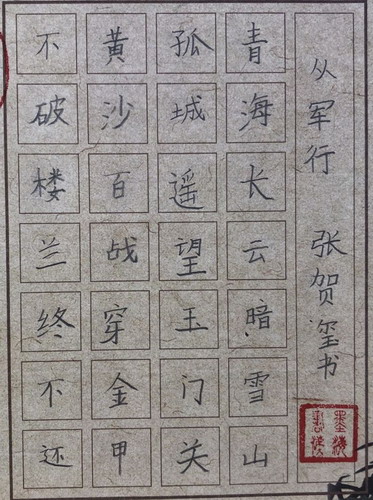 从军行 张贺玺书
青海长云暗雪山
孤城遥望玉门关
黄沙百战穿金甲
不破楼兰终不还